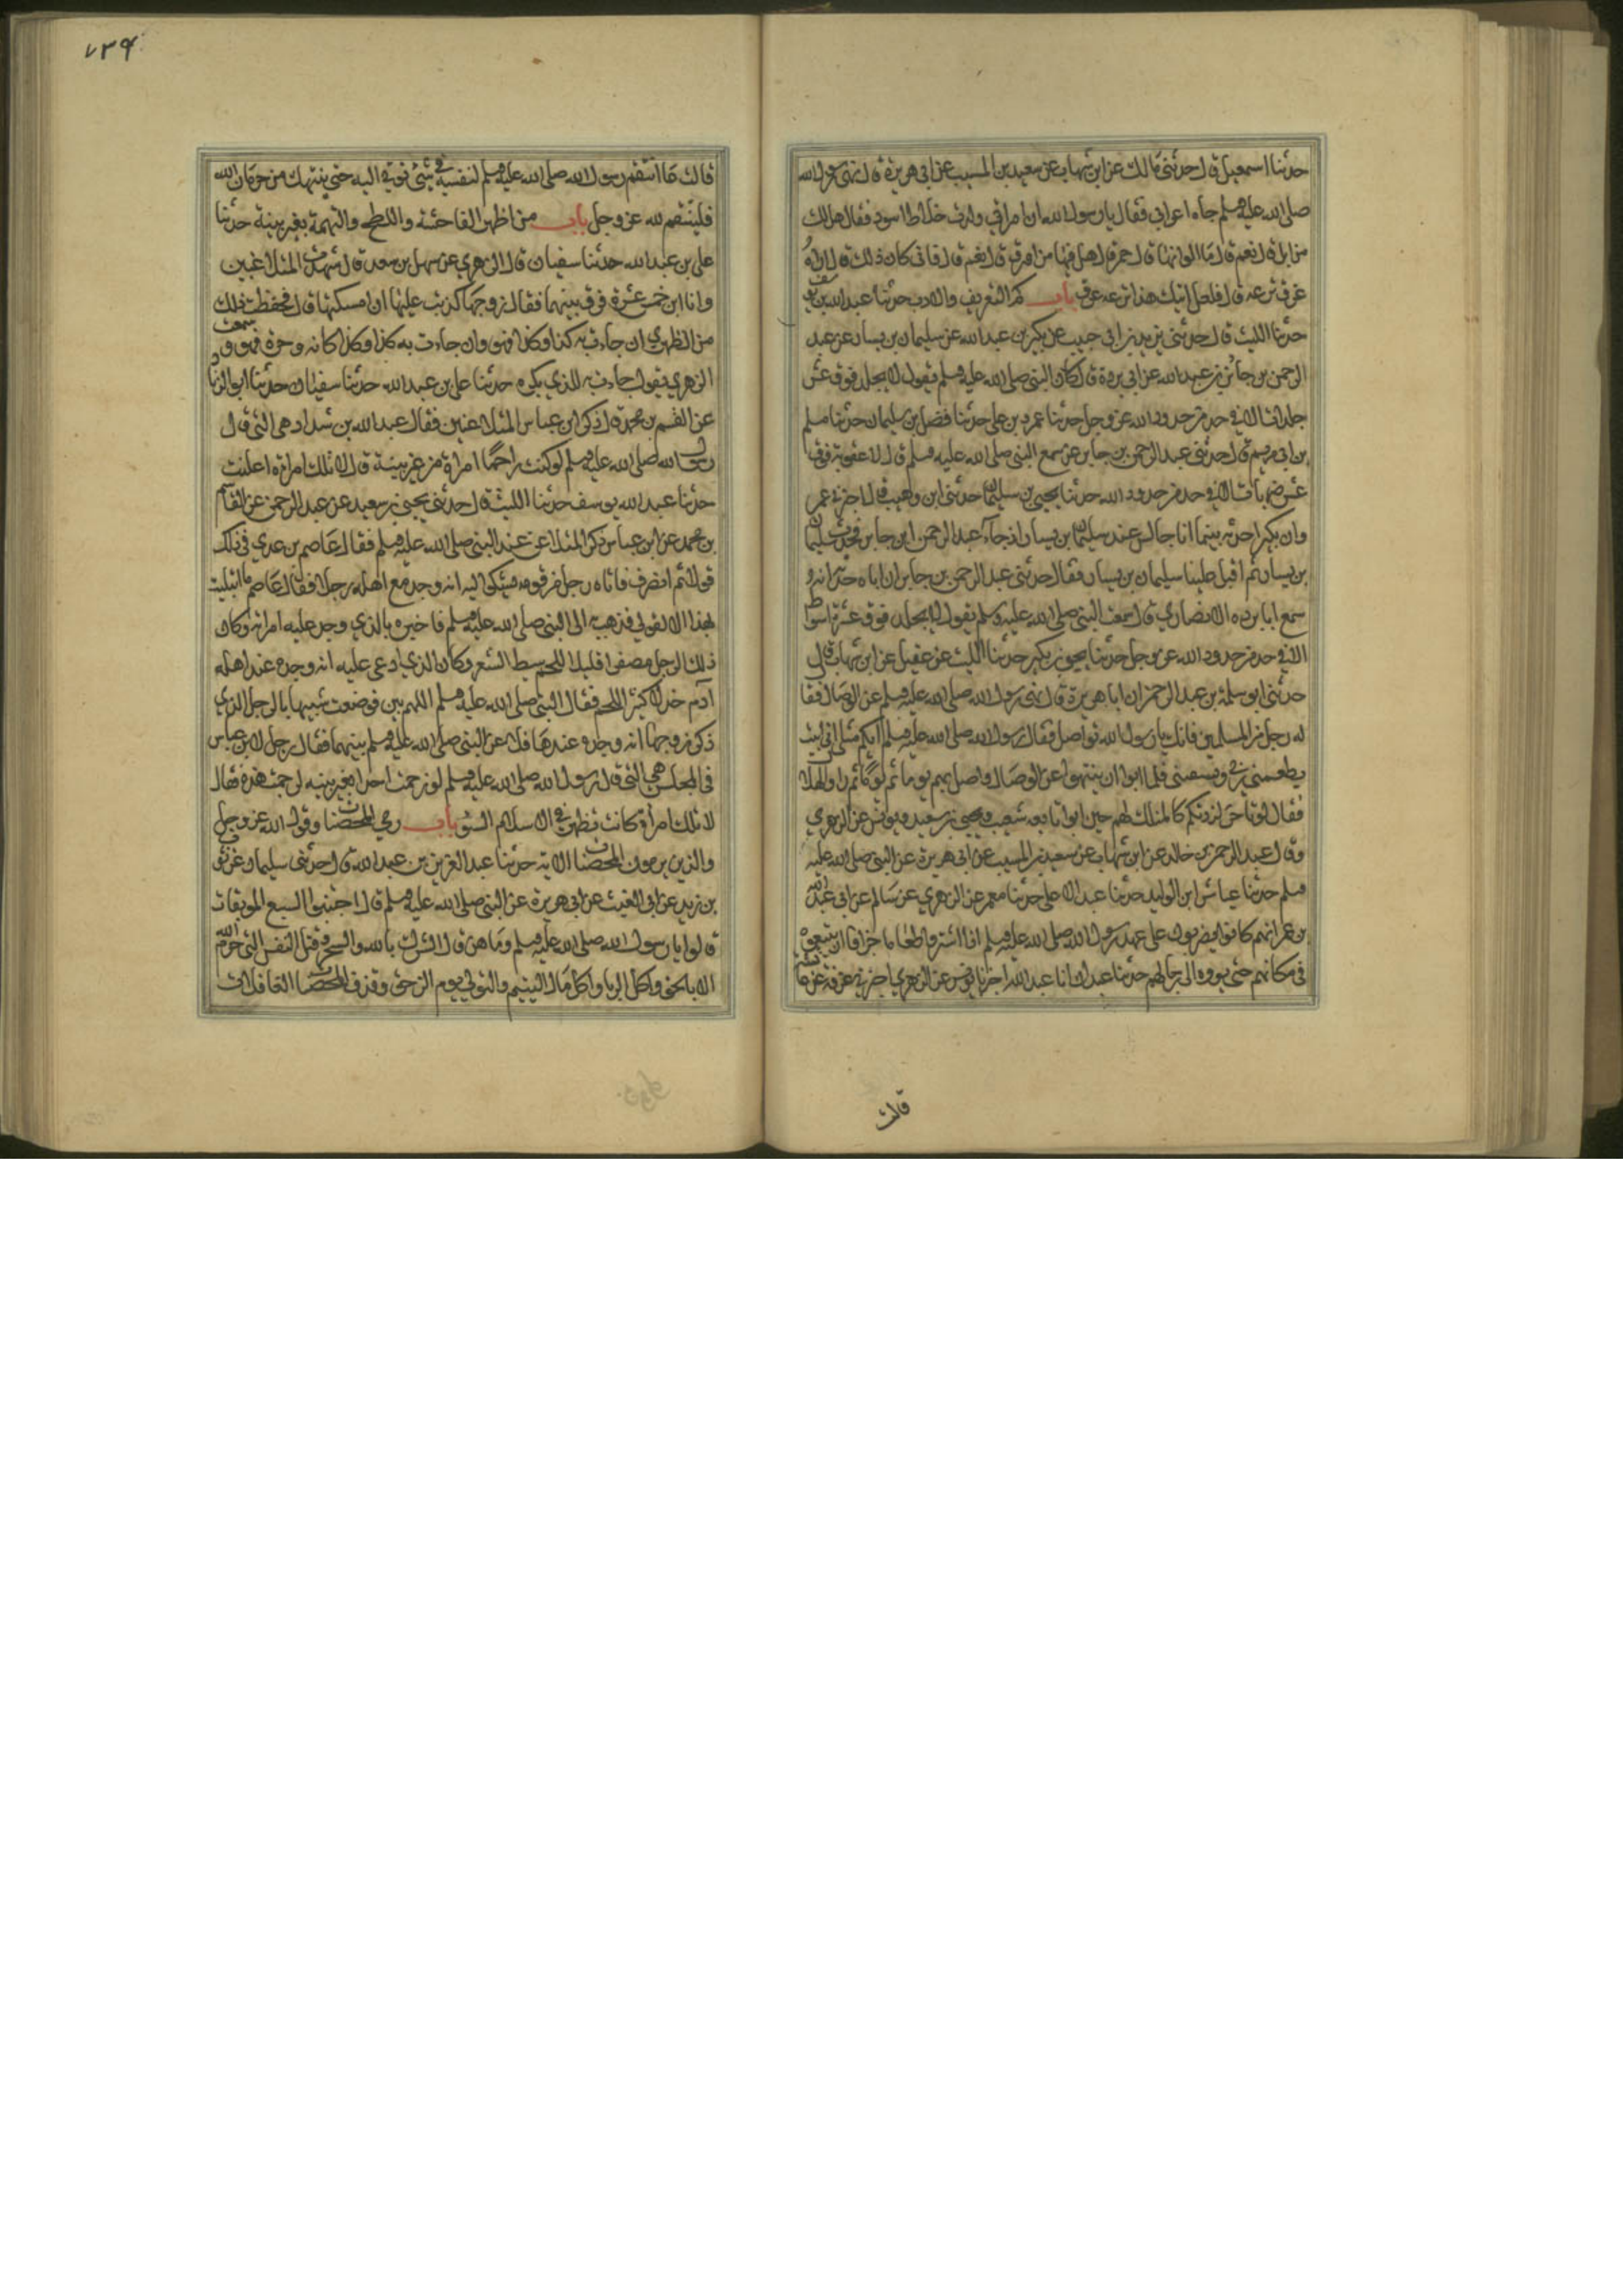 حدثنا اسمعيل قال حدثنى مالك عن ابن شهاب عن سعيد بن المسيب عن ابى هريرة ان رسول الله
صلى الله عليه وسلم جاه اعرابى فقال يا رسول الله ان امراتى ولدت غلاما اسود فقال هل لك
من ابل قال نعم قال ما الوانها قال حمر قال هل فيها من اورق قال نعم قال فانى كان ذلك قال اراه
عرق نزعه قال فلعل ابنك هذا نزعه عرق باب كم التعزير والادب حدثنا عبد الله بن يوسف
حدثنا الليث قال حدثنى يزيد بن ابى حبيب عن بكير بن عبد الله عن سليمان بن يسار عن عبد
الرحمن بن جابر بن عبد الله عن ابى بردة قال كان النبى صلى الله عليه وسلم يقول لا يجلد فوق عشر
جلدات الا فى حد من حدود الله عز وجل حدثنا عمرو بن على حدثنا فضيل بن سليمان حدثنا مسلم
بن ابى مريم قال حدثنى عبد الرحمن بن جابر عن سمع النبى صلى الله عليه وسلم قال لا عقوبة فوق
عشر ضربات الا فى حد من حدود الله حدثنا يحيى بن سليمان حدثنى ابن وهب قال اخبرنى عمر
وان بكيرا حدثه بينما انا جالس عند سليمان بن يسار اذ جاء عبد الرحمن ابن جابر فحدث سليمان
بن يسار ثم اقبل علينا سليمان بن يسار فقال حدثنى عبد الرحمن بن جابر ان اباه حدثه انه
سمع ابا برده الانصارى قال سمعت النبى صلى الله عليه وسلم يقول لا يجلد فوق عشرة اسواط
الا فى حد من حدود الله عز وجل حدثنا يحيى بن بكير حدثنا الليث عن عقيل عن ابن شهاب قال
حدثنى ابو سلمة بن عبد الرحمن ان ابا هريرة قال نهى رسول الله صلى الله عليه وسلم عن الوصال فقا
له رجل من المسلمين فانك يا رسول الله تواصل فقال رسول الله صلى الله عليه وسلم ايكم مثلى انى ابيت
يطعمنى ربى ويسقنى فلما ابوا ان ينتهوا عن الوصال واصل بهم يوما ثم يوما ثم راوا الهلال
فقال لو تاخر لزدتكم كالمنكل لهم حين ابوا تابعه شعيب ويحيى بن سعيد ويونس عن الزهرى
وقال عبد الرحمن بن خالد عن ابن شهاب عن سعيد بن المسيب عن ابى هريرة عن النبى صلى الله عليه
وسلم حدثنا عياش ابن الوليد حدثنا عبد الاعلى حدثنا معمر عن الزهرى عن سالم عن ابى عبد الله
بن عمر انهم كانوا يضربون على عهد رسول الله صلى الله عليه وسلم اذا اشتروا طعاما جزافا ان يبيعوه
فى مكانهم حتى يووه الى رحالهم حدثنا عبدان انا عبد الله اخبرنا يونس عن الزهرى اخبرنى عروة عن عائشة
قالت
٧٣٩
قالت ما انتقم رسول الله صلى الله عليه وسلم لنفسه فى شئ يوتى اليه حتى ينتهك من حرمات الله
فلينتقم لله عز وجل باب من اظهر الفاحشة واللطخ والتهمة بغير بينة حدثنا
على بن عبد الله حدثنا سفيان قال الزهرى عن سهل بن سعد قال شهدت المتلاعنين
وانا ابن خمس عشرة فرق بينهما فقال زوجها كذبت عليها ان امسكتها قال فحفظت ذلك
من الظهرى ان جاءت به كذا وكذا فهو وان جاءت به كذا وكذا كانه وحرة فهو وسمعت
الزهرى يقول جاءت به للذى يكره حدثنا على بن عبد الله حدثنا سفيان حدثنا ابو الزناد
عن القسم بن محمد قال ذكر ابن عباس المتلاعنين فقال عبد الله بن شداد هى التى قال
رسول الله صلى الله عليه وسلم لو كنت راجما امراة من غير بينة قال لا تلك امراة اعلنت
حدثنا عبد الله يوسف حدثنا الليث قال حدثنى يحيى بن سعيد عن عبد الرحمن عن القاسم
بن محمد عن ابن عباس ذكر المتلاعن عند النبى صلى الله عليه وسلم فقال عاصم بن عدى فى ذلك
قولا ثم انصرف فاتاه رجل من قومه يشكوا اليه انه وجد مع اهله رجلا فقال عاصم ما ابتليت
بهذا الا لقولى فذهب الى النبى صلى الله عليه وسلم فاخبره بالذى وجد عليه امراته وكان
ذلك الرجل مصفرا قليل اللحم سبط الشعر وكان الذى ادعى عليه انه وجده عند اهله
آدم خدلا كثير اللحم فقال النبى صلى الله عليه وسلم اللهم بين فوضعت شبيها بالرجل الذى
ذكر زوجها انه وجده عندها فلاعن النبى صلى الله عليه وسلم بينهما فقال رجل لابن عباس
فى المجلس هى التى قال رسول الله صلى الله عليه وسلم لو رجمت احدا بغير بينه لرجمت هذه فقال
لا تلك امرأة كانت تظهر فى الاسلام السؤ باب رمى المحصنات وقول الله عز وجل
والذين يرمون المحصنات الاية حدثنا عبد العزيز بن عبد الله قال حدثنى سليمان عن ثور
بن زيد عن ابى الغيث عن ابى هريرة عن النبى صلى الله عليه وسلم قال اجتنبوا السبع الموبقات
قالوا يا رسول الله صلى الله عليه وسلم وما هن قال الشرك بالله والسحر وقتل النفس التى حرم الله
الا بالحق واكل الربا واكل مال اليتيم والتولى يوم الزحف وقذف المحصنات الغافلات